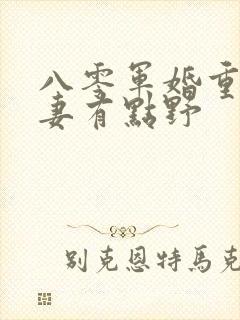 八零軍婚重
妻有點野
別克恩特馬克